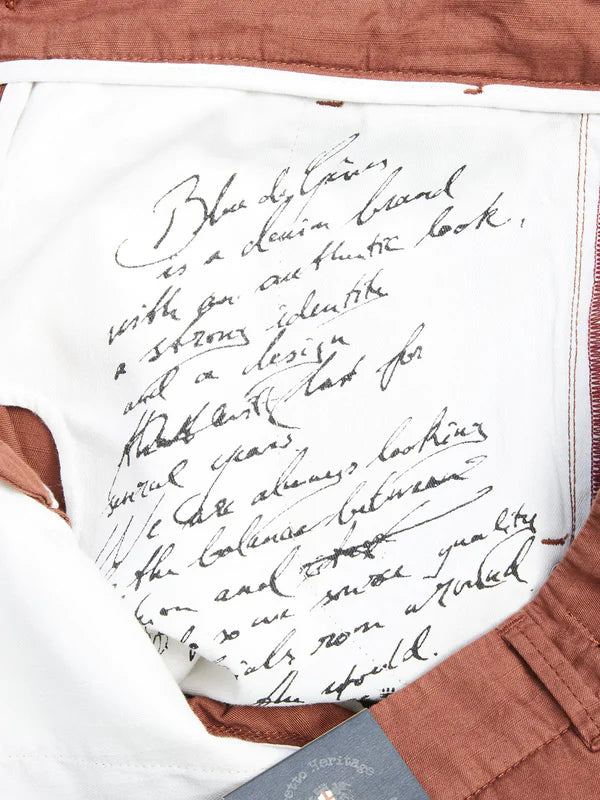 Blue de Gênes
is a denim brand
with an authentic look,
a strong identity
and a design
that will last for
several years
We are always looking
the balance between
and
so we source quality
rom around
the would.
etto Heritage